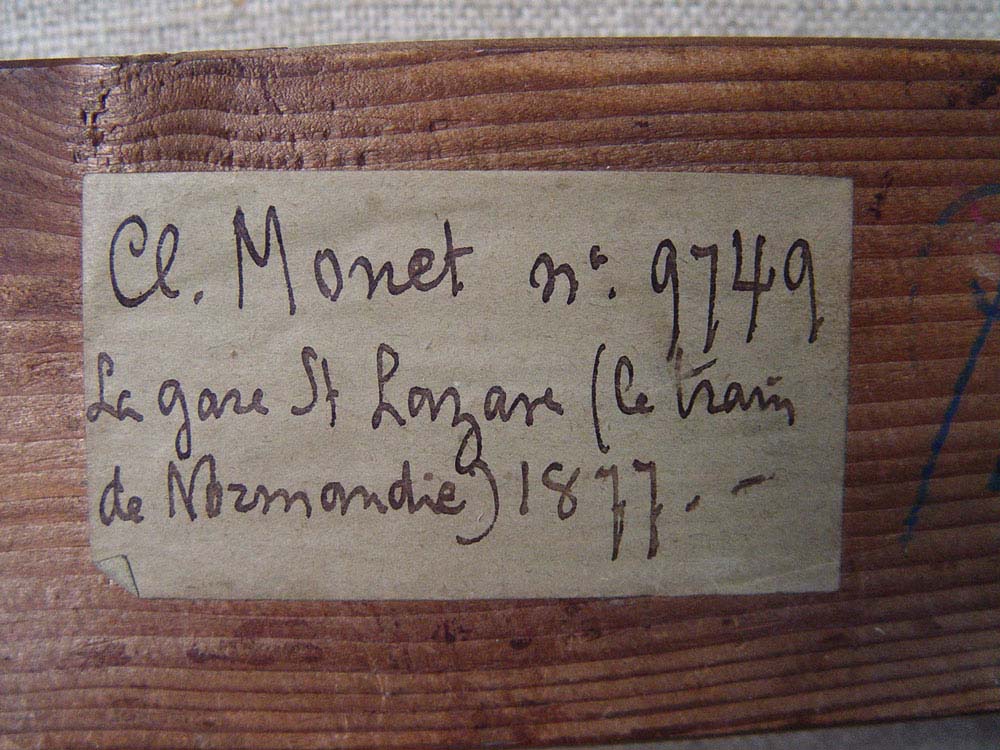 Cl. Monet n°: 9749
La gare St Lazare (le train
de Normandie) 1877. -